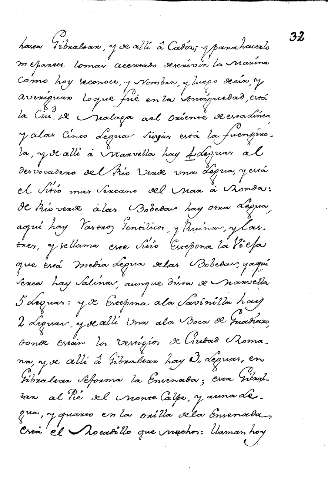 32
hasta Gibraltar, y de alli â Cadiz, y para hacerlo
me parece tomar acertado describir la Marina
como hoy reconoce, y Nombra, y luego decir, y
averiguar lo que fué en la Antiguedad, está
la Ciu.d de Malaga al oriente de esta linea
y a las Cinco Leguas siguen está la fuengiro-
la, y de alli â Marvella hay 4 Leguas al
desvocadero del Rio Verde una Legua, y está
el Sitio mas cercano del Mar â Ronda:
de Rio verde â las Bobedas hay otra Legua,
aqui hay Vasos Gentilicos, y Ruinas, y las-
tres, y se llama este Sitio Estepona la Vieja
que está media Legua de las Bobedas, y aqui
cerca hay Salinas, aunque dista de Marvella
5 leguas: y de Estepona a la Savinilla hay
2 Leguas, y de alli una a la Boca de Guadiaro,
donde están los vestigios de Ciudad Roma-
na, y de alli â Gibraltar hay 3 Leguas, en
Gibraltar se forma la Ensenada; esta Gibral-
tar al Pie del Monte Calpe, y a una Le-
gua, y quarto en la orilla de la Ensenada
está el Rocadillo que muchos: llaman hoy